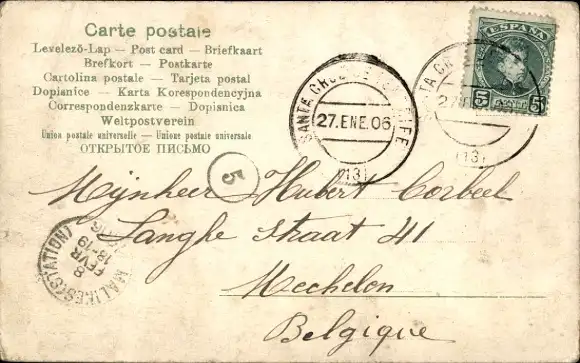 Carte postale
Levelező-Lap — Post card — Briefkaart
Brefkort — Postkarte
Cartolina postale — Tarjeta postal
Dopisnice — Karta Korespondencyjna
Correspondenzkarte — Dopisnica
Weltpostverein
Union postale universelle — Unione postale universale
ОТКРЫТОЕ ПИСЬМО
SANTA CRUZ DE TENERIFE
27.ENE.06
(13)
SANTA CR
27.E
(13)
ESPAÑA
5 5
5
Mijnheer Hubert Corbeel
Langhe Straat 41
Mechelen
Belgique
MALINES (STATION)
8
FEVR
18-19